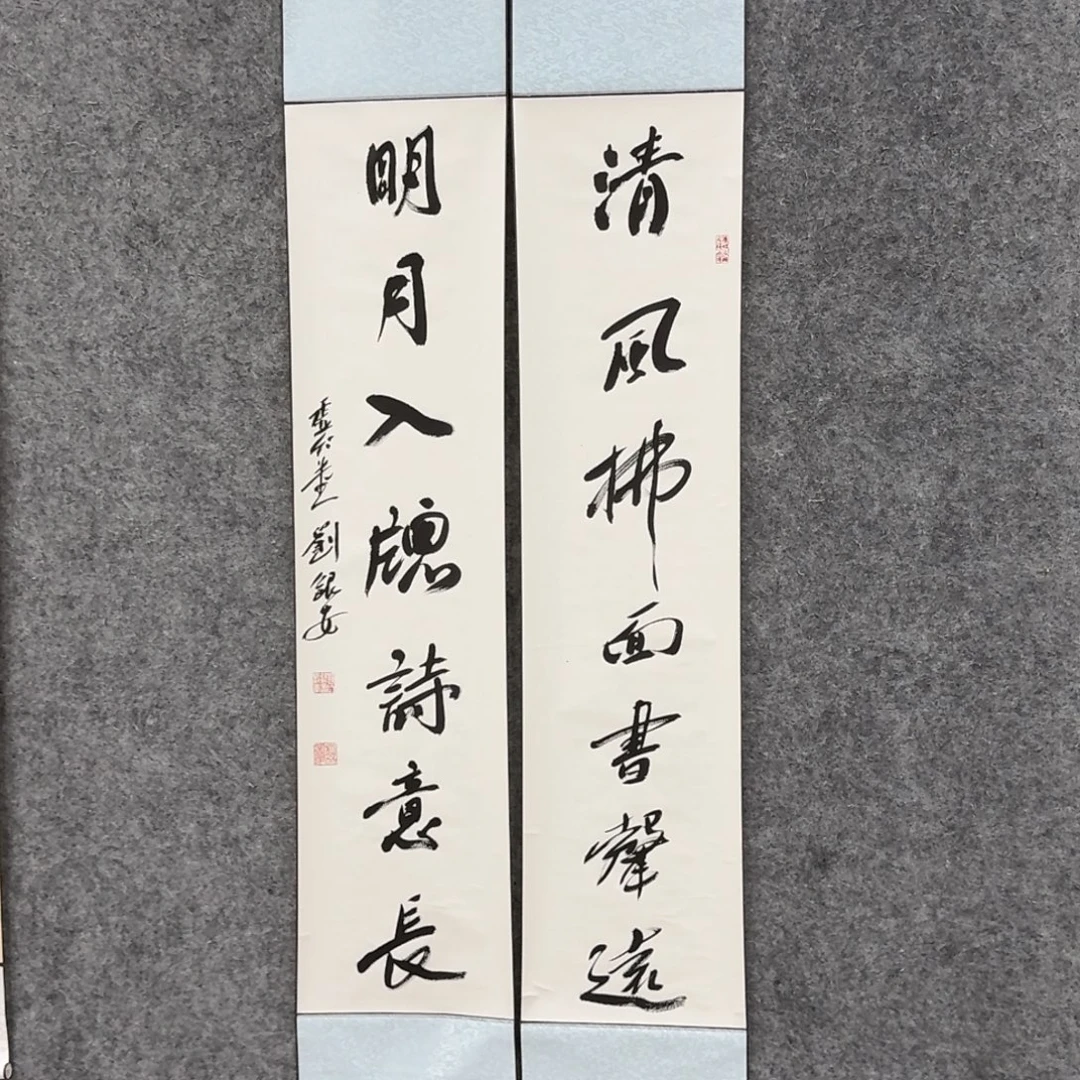 清風拂面書聲遠
明月入牕詩意長
劉銀安